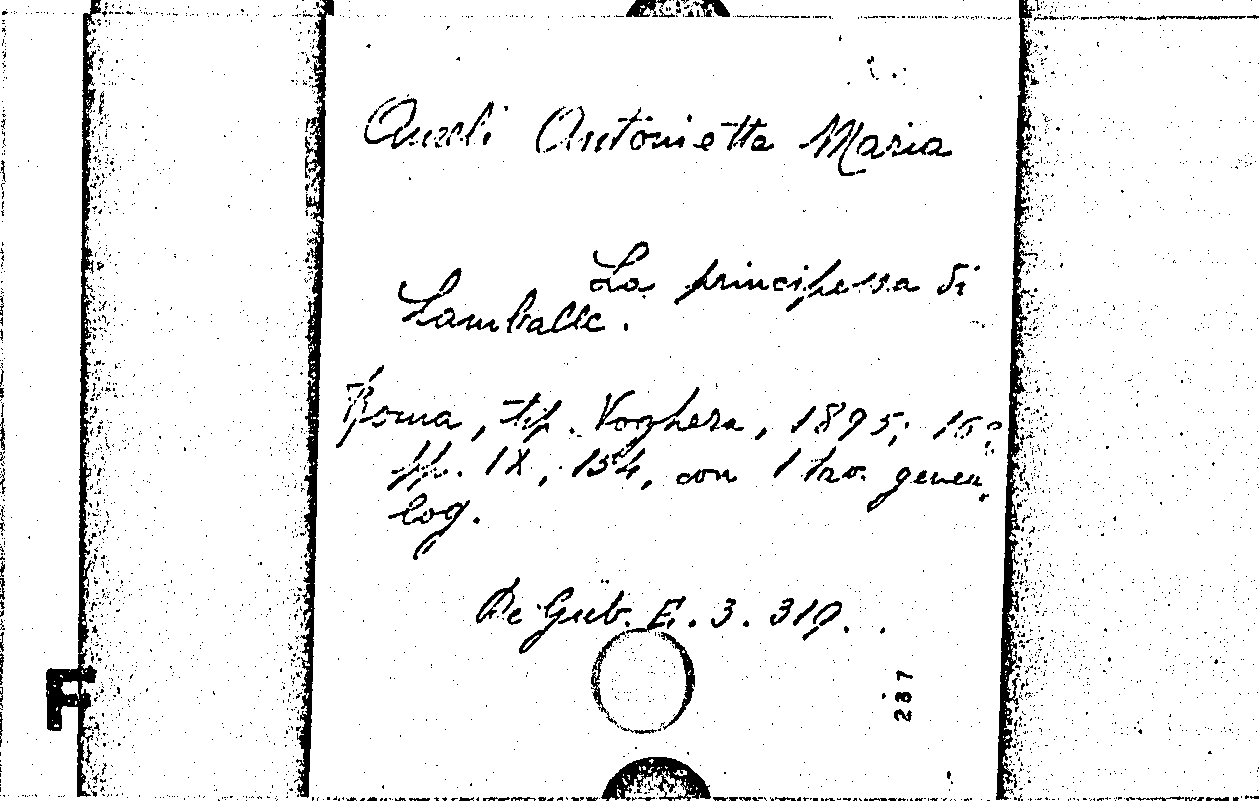 Aureli Antonietta Maria
La principessa di
Lamballe.
Roma, tip. Voghera, 1895; 16º
pp. IX, 154, con 1 tav. genea„
log.
De Gub. E. 3. 319.
287
F